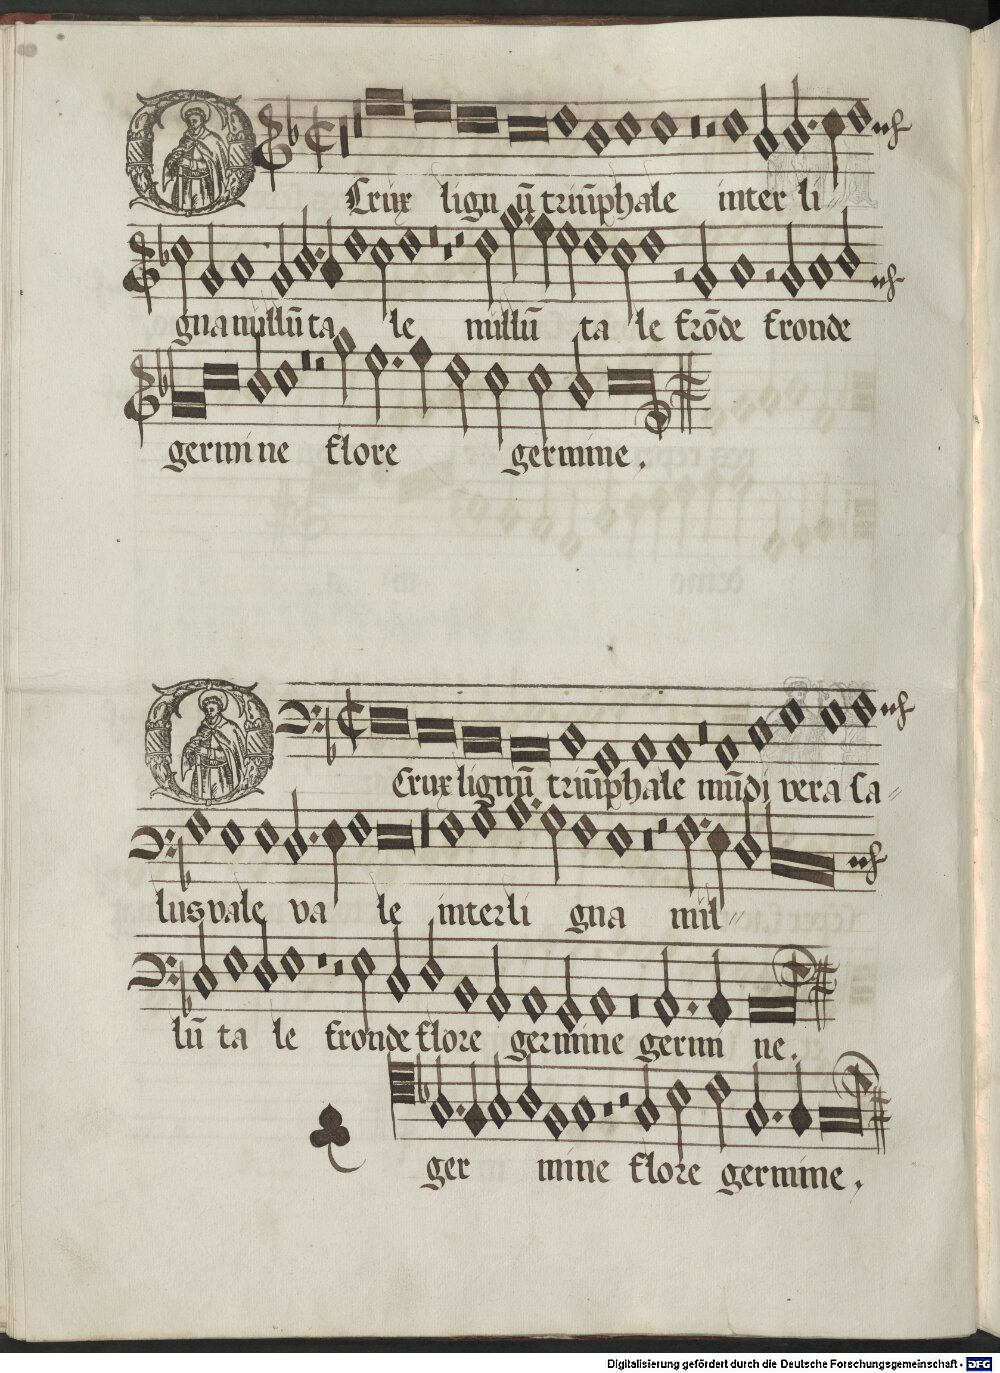 Crux lignū triūphale inter li
gna nullū ta le nullū ta le frōde fronde
germine flore germine.
Crux lignū triūphale mūdi vera sa„
lus vale va le inter li gna nul„
lū ta le fronde flore germine germi ne.
ger mine flore germine.
Digitalisierung gefördert durch die Deutsche Forschungsgemeinschaft - DFG